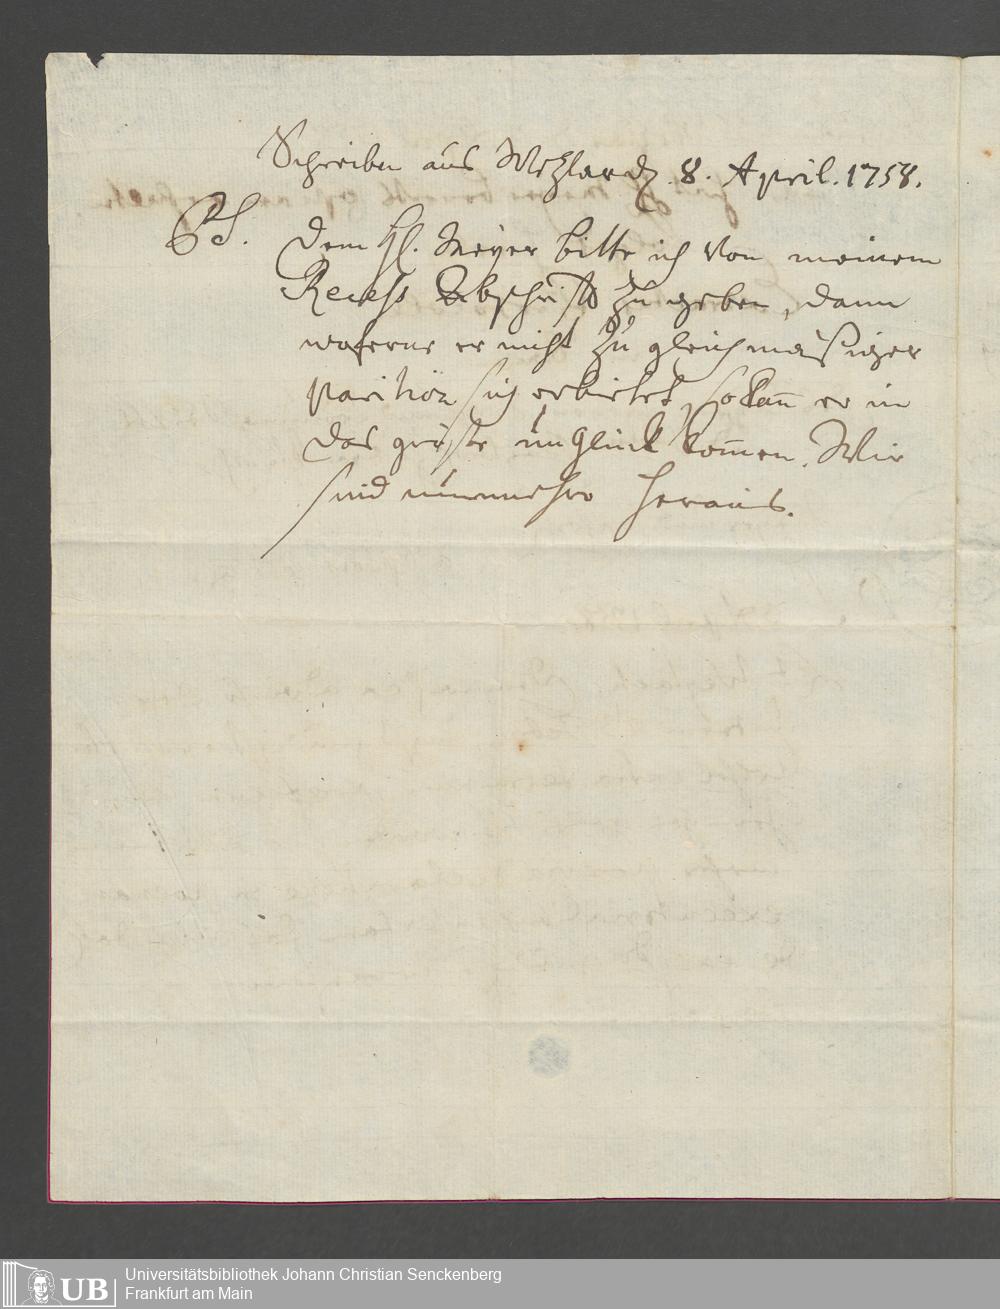 Schreiben aus Wetzlar d. 8. April. 1758.
PS. Dem H. Meyer bitte ich von meinem
Recess Abschrift zu geben, dann
woferne er nicht zu gleichmäsiger
parition sich erbietet, so kan er in
das gröste unglück kommen. Wir
sind nunmehro heraus.
UB Universitätsbibliothek Johann Christian Senckenberg
Frankfurt am Main